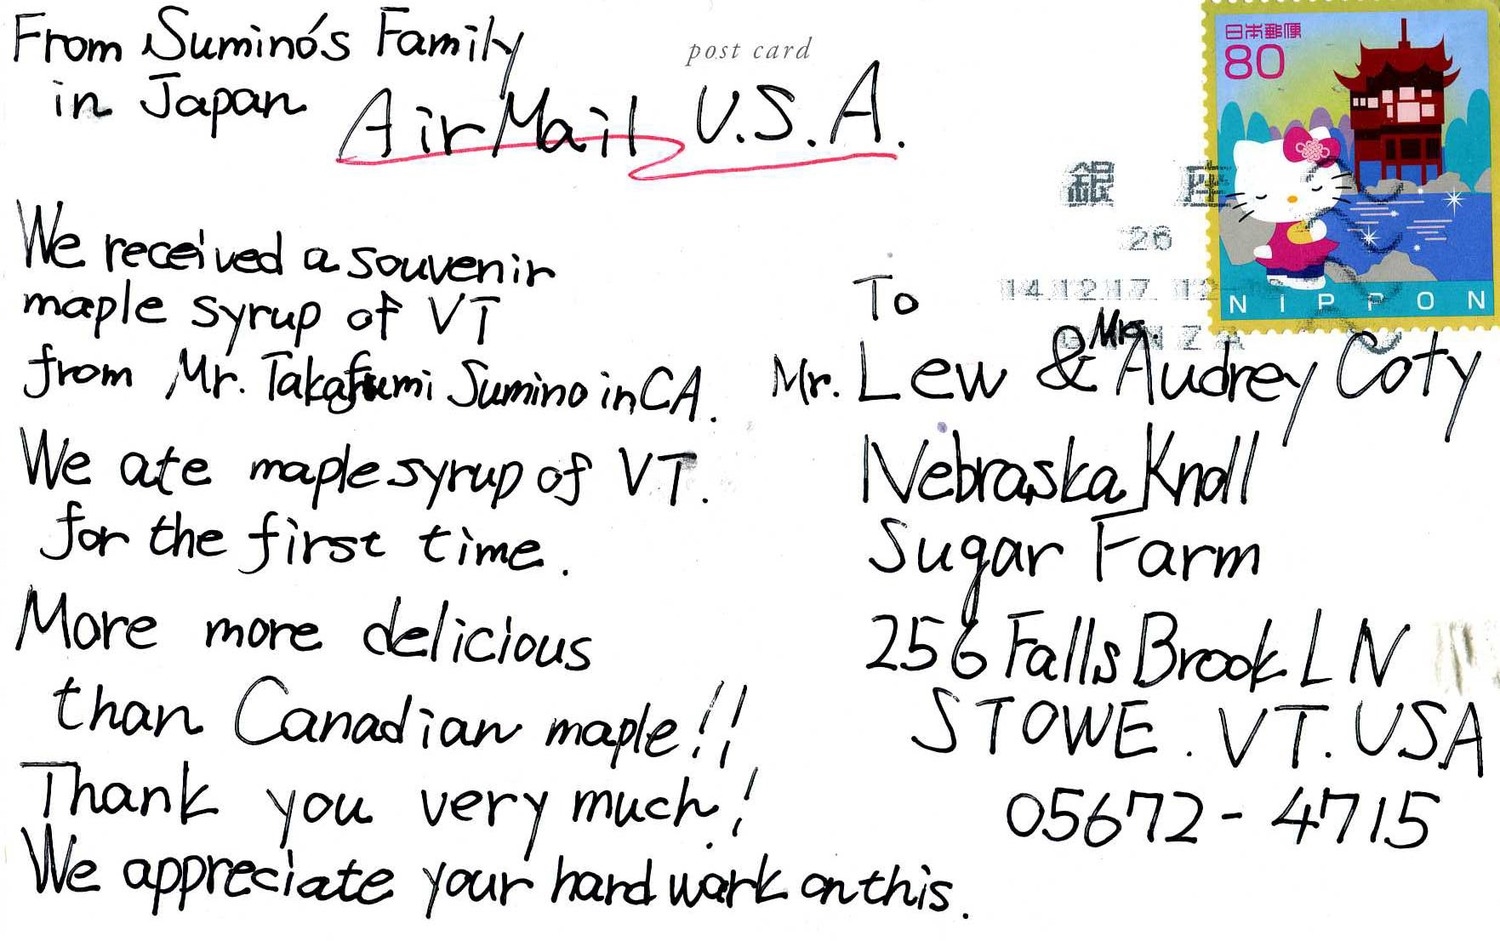 From Sumino's Family
in Japan
post card
Air Mail U.S.A.
日本郵便
80
NIPPON
銀座
26
14.12.17. 12-
GINZA
We received a souvenir
maple syrup of VT
from Mr. Takafumi Sumino in CA.
We ate maple syrup of VT.
for the first time.
More more delicious
than Canadian maple!!
Thank you very much!
We appreciate your hard work on this.
To
Mr. Lew & Mrs. Audrey Coty
Nebraska Knoll
Sugar Farm
256 Falls Brook LN
STOWE. VT. USA
05672-4715